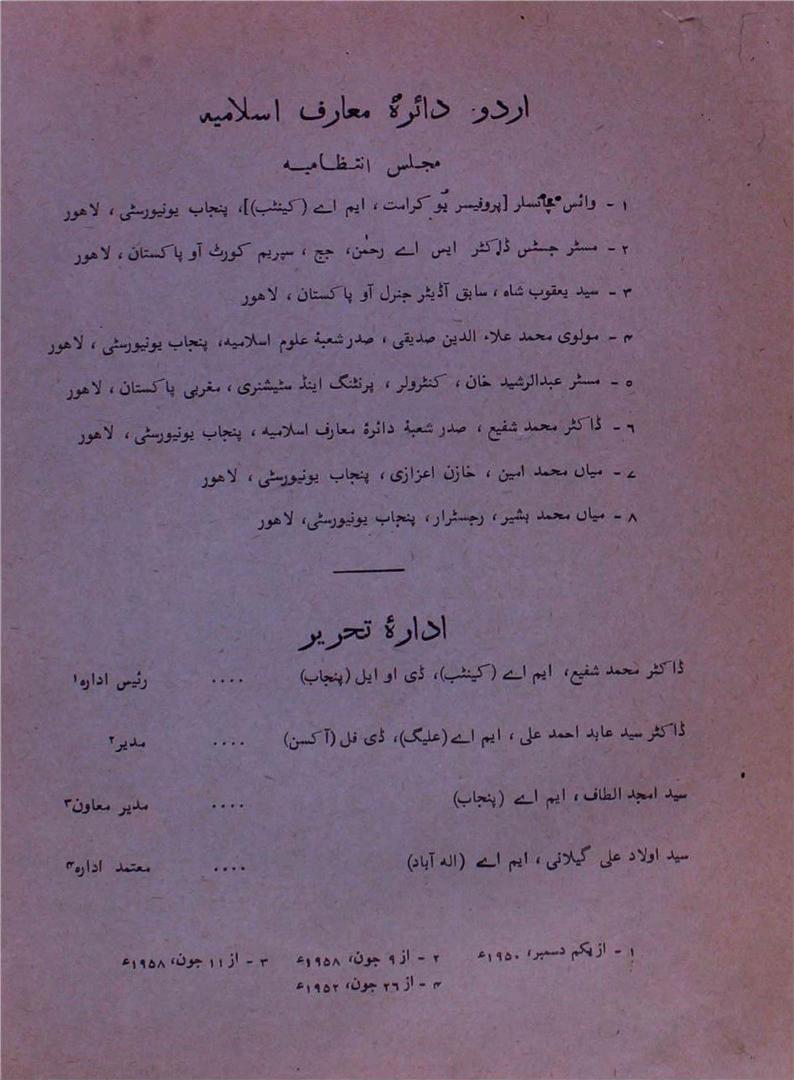 اردو دائرۂ معارف اسلامیه
مجلس انتظامیه
۱ - وائس چانسلر [پروفیسر یُو کرامت، ایم اے (کینٹب)]، پنجاب یونیورسٹی، لاهور
۲ - مسٹر جسٹس ڈاکٹر ایس اے رحمٰن، جج، سپریم کورٹ آو پاکستان، لاهور
۳ - سید یعقوب شاه، سابق آڈیٹر جنرل آو پاکستان، لاهور
۴ - مولوی محمد علاء الدین صدیقی، صدر شعبۂ علوم اسلامیه، پنجاب یونیورسٹی، لاهور
۵ - مسٹر عبدالرشید خان، کنٹرولر، پرنٹنگ اینڈ سٹیشنری، مغربی پاکستان، لاهور
۶ - ڈاکٹر محمد شفیع، صدر شعبۂ دائرۂ معارف اسلامیه، پنجاب یونیورسٹی، لاهور
۷ - میاں محمد امین، خازن اعزازی، پنجاب یونیورسٹی، لاهور
۸ - میاں محمد بشیر، رجسٹرار، پنجاب یونیورسٹی، لاهور
ادارۂ تحریر
ڈاکٹر محمد شفیع، ایم اے (کینٹب)، ڈی او ایل (پنجاب) .... رئیس اداره۱
ڈاکٹر سید عابد احمد علی، ایم اے (علیگ)، ڈی فل (آکسن) .... مدیر۲
سید امجد الطاف، ایم اے (پنجاب) .... مدیر معاون۳
سید اولاد علی گیلانی، ایم اے (اله آباد) .... معتمد اداره۴
۱ - از یکم دسمبر، ۱۹۵۰ء ۲ - از ۹ جون، ۱۹۵۸ء ۳ - از ۱۱ جون، ۱۹۵۸ء
۴ - از ۲۶ جون، ۱۹۵۲ء